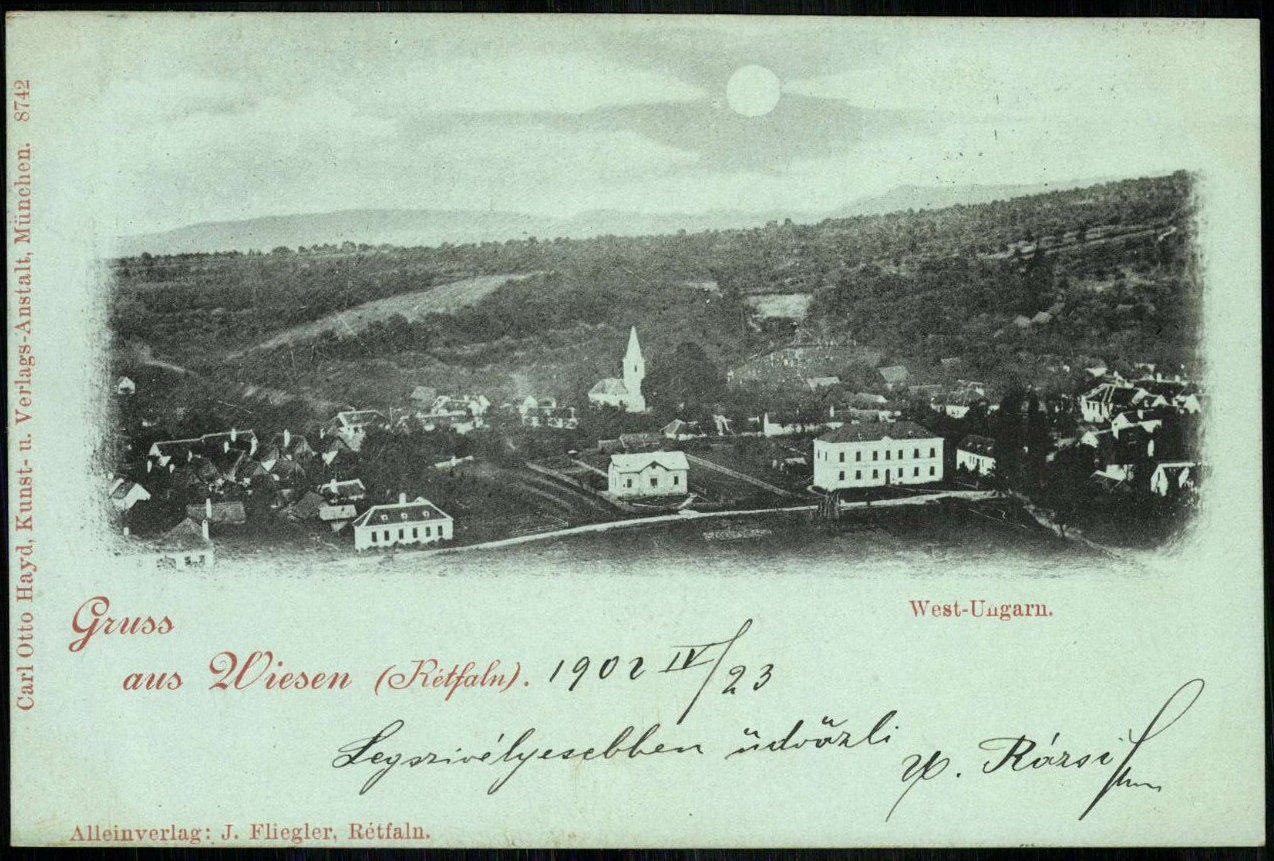 Carl Otto Hayd, Kunst- u. Verlags-Anstalt, München. 8742
West-Ungarn.
Gruss
aus Wiesen (Rétfaln). 1902 IV/23
Legszivélyesebben üdvözli
Rózsi
Alleinverlag: J. Fliegler, Rétfaln.